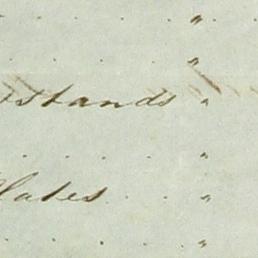 . . . "
. . . "
stands "
. . . . "
lates . . "
. . . . "